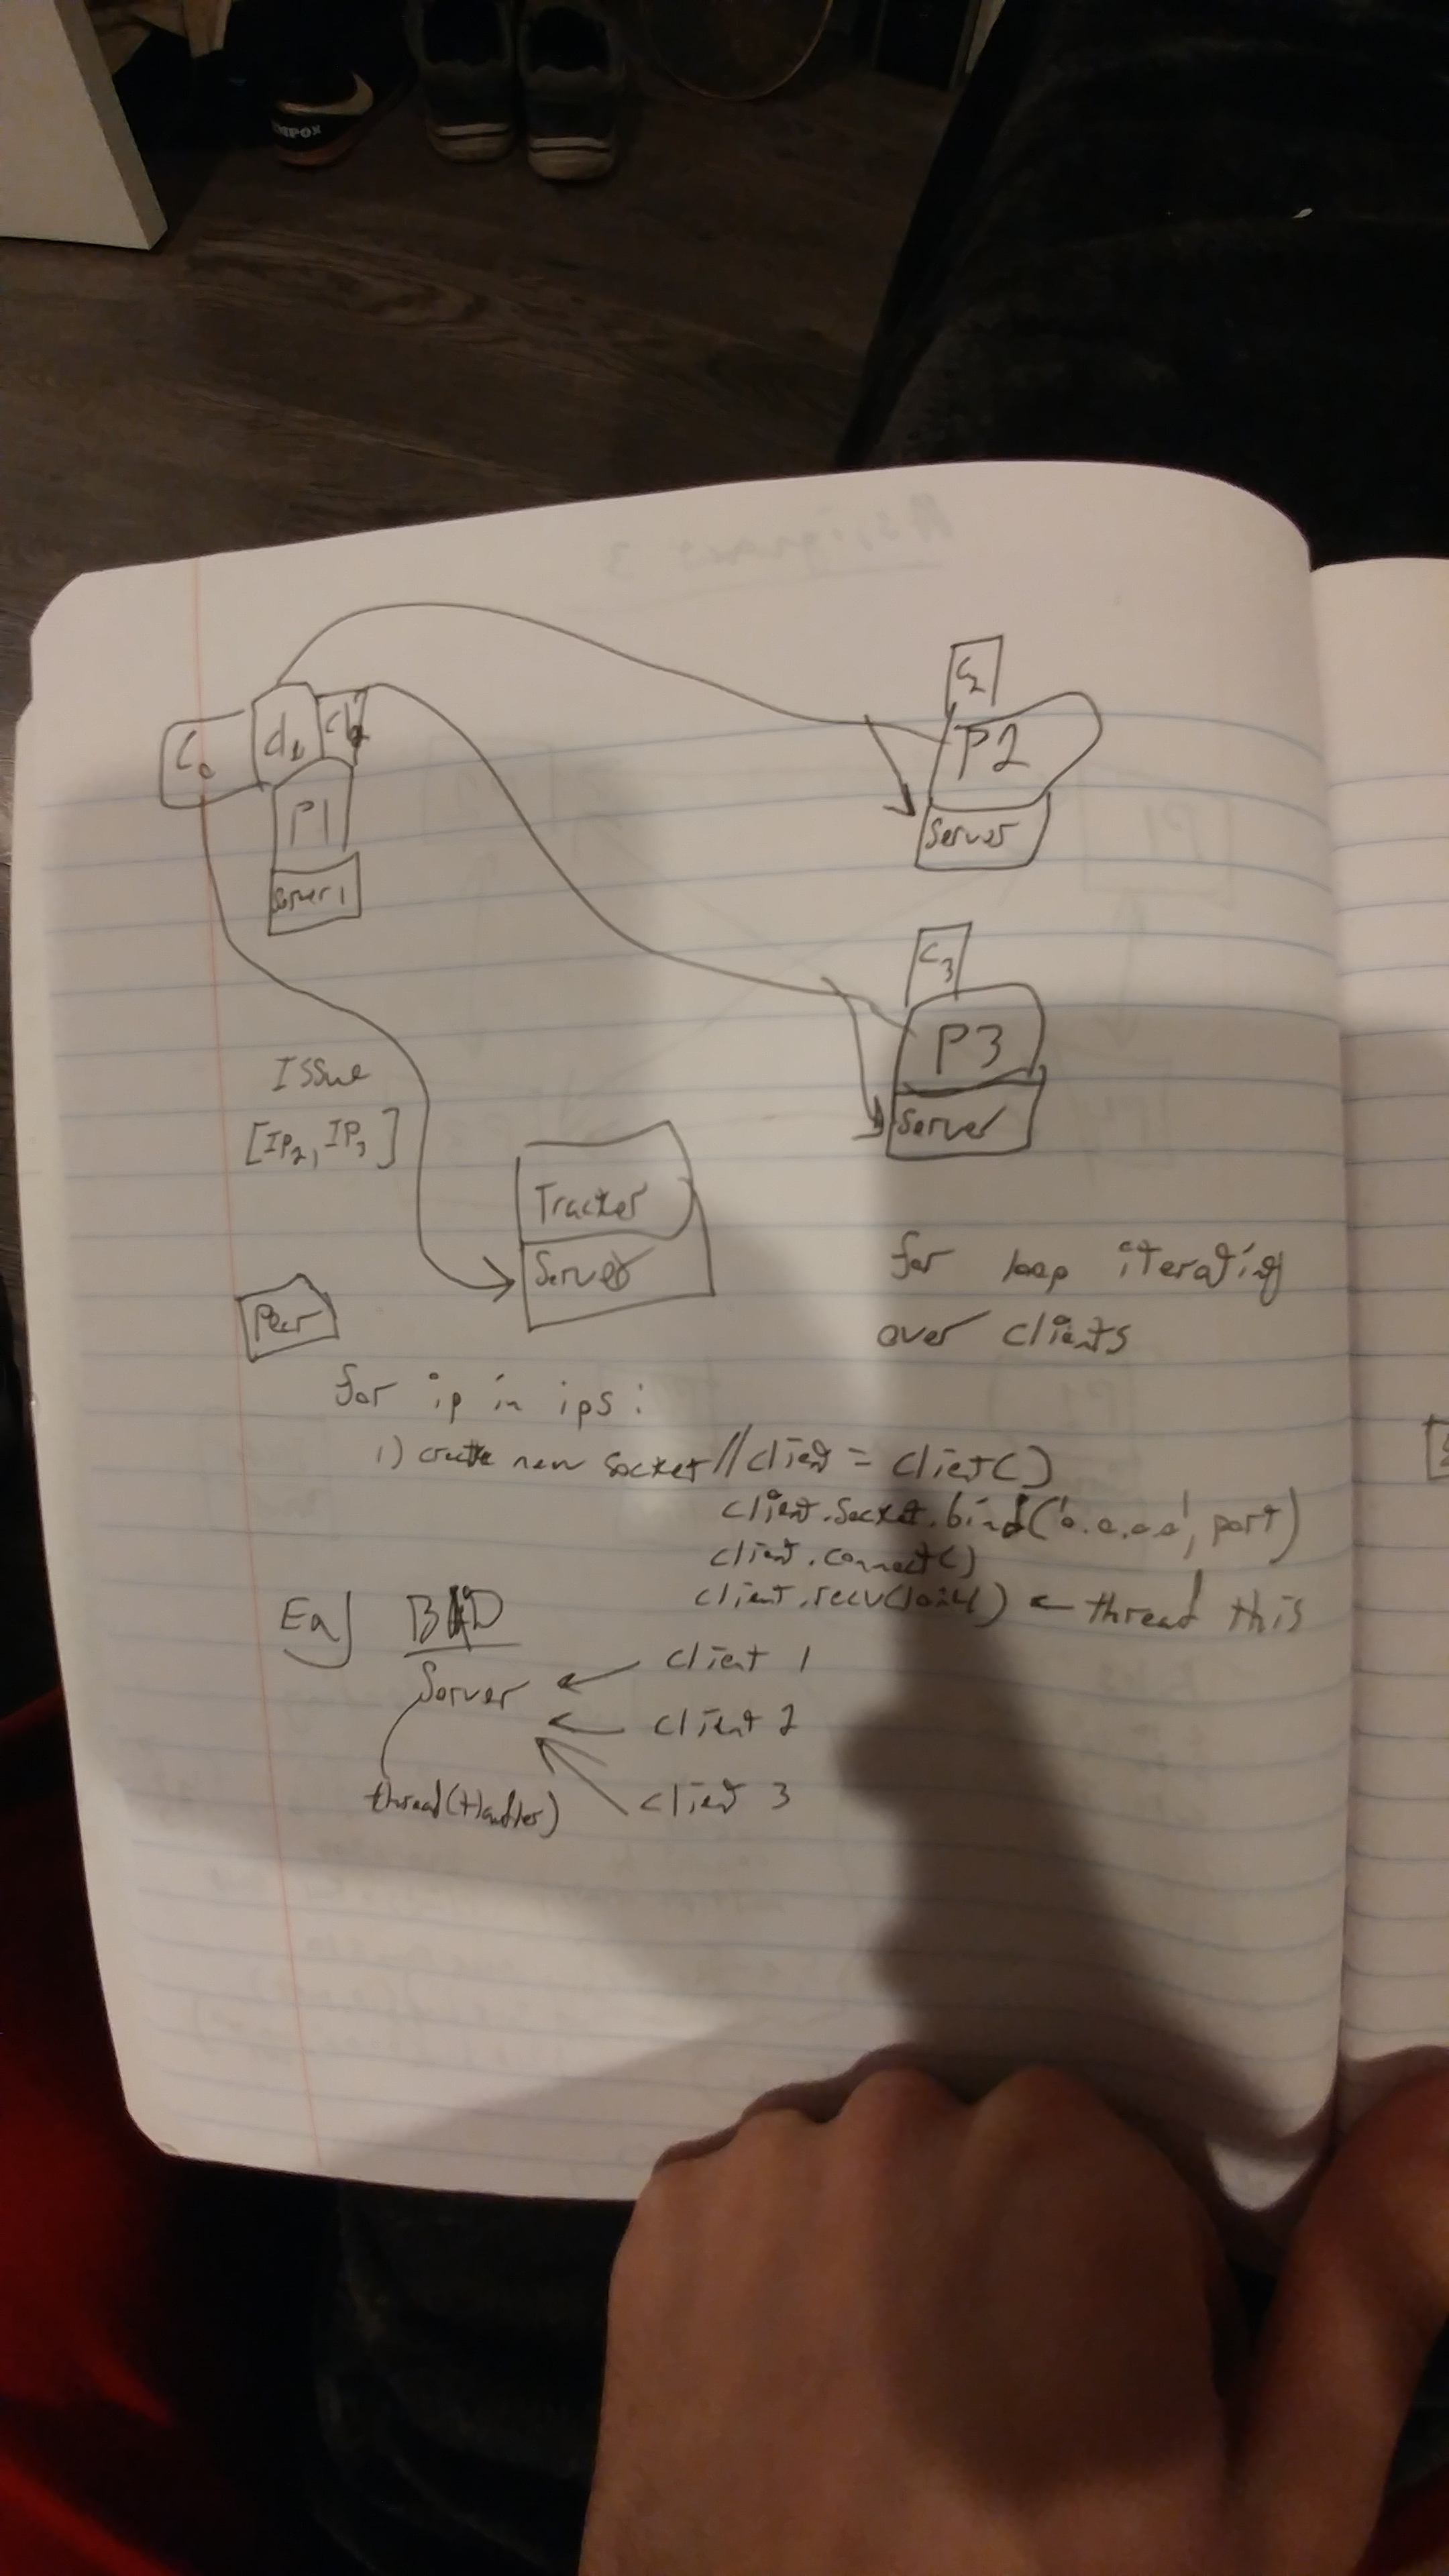 C2
C0 d1
P2
P1
Server
Server 1
C3
P3
Issue
[IP2, IP3]
Server
Tracker
Server
for loop iterating
over clients
Peer
for ip in ips:
1) create new socket // client = client()
client.socket.bind('0.0.0.0', port)
client.connect()
client.recv(1024) ← thread this
Eg) BAD
Server ← client 1
← client 2
thread(Handler) client 3